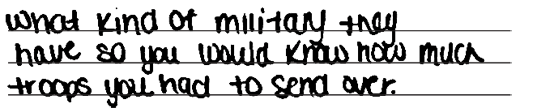 what kind of military they
have so you would know how much
troops you had to send over.